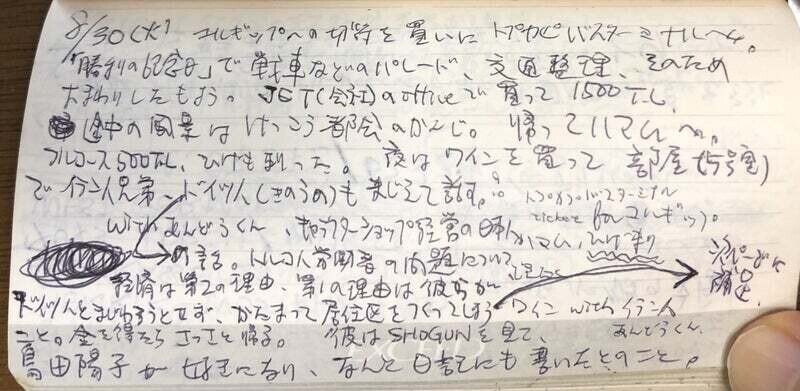 8/30(火) コルギップへの切符を買いにトプカピバスターミナルへ。
「勝利の記念日」で戦車などのパレード、交通整理、そのため
大まわりしたもよう。JET(会社)のofficeで買って1500TL。
途中の風景はけっこう都会のかんじ。帰ってハマムへ。
フルコース500TL、ひげも剃った。夜はワインを買って部屋(5号室)
でイラン人兄弟、ドイツ人(きのうの)もまじえて話す。
トプカプバスターミナル
ticket for コルギップ。
withあんどうくん、キャラクターショップ経営の日本人
ハマム、ひげ剃り
の話。トルコ人労働者の問題について
経済は第2の理由、第1の理由は彼らが
ドイツ人とまじわろうとせず、かたまって居住区をつくってしまう
ワイン with イラン人
あんどうくん
こと。金を得たらさっさと帰る。彼はSHOGUNを見て、
島田陽子が好きになり、なんと日記にも書いたとのこと。